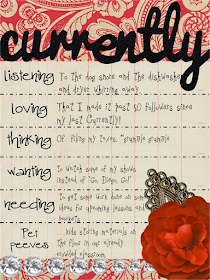 currently
listening
To the dog snore and the dishwasher
and dryer whirring away
loving
That I made it past 50 followers since
my last Currently!
thinking
Of filing my taxes. *grumble grumble*
wanting
to watch some of my shows
instead of "Go, Diego, Go!"
needing
To get some work done on some
ideas for upcoming lessons and
Pet
peeves
...kids stealing materials on
the floor in our already
crowded classroom